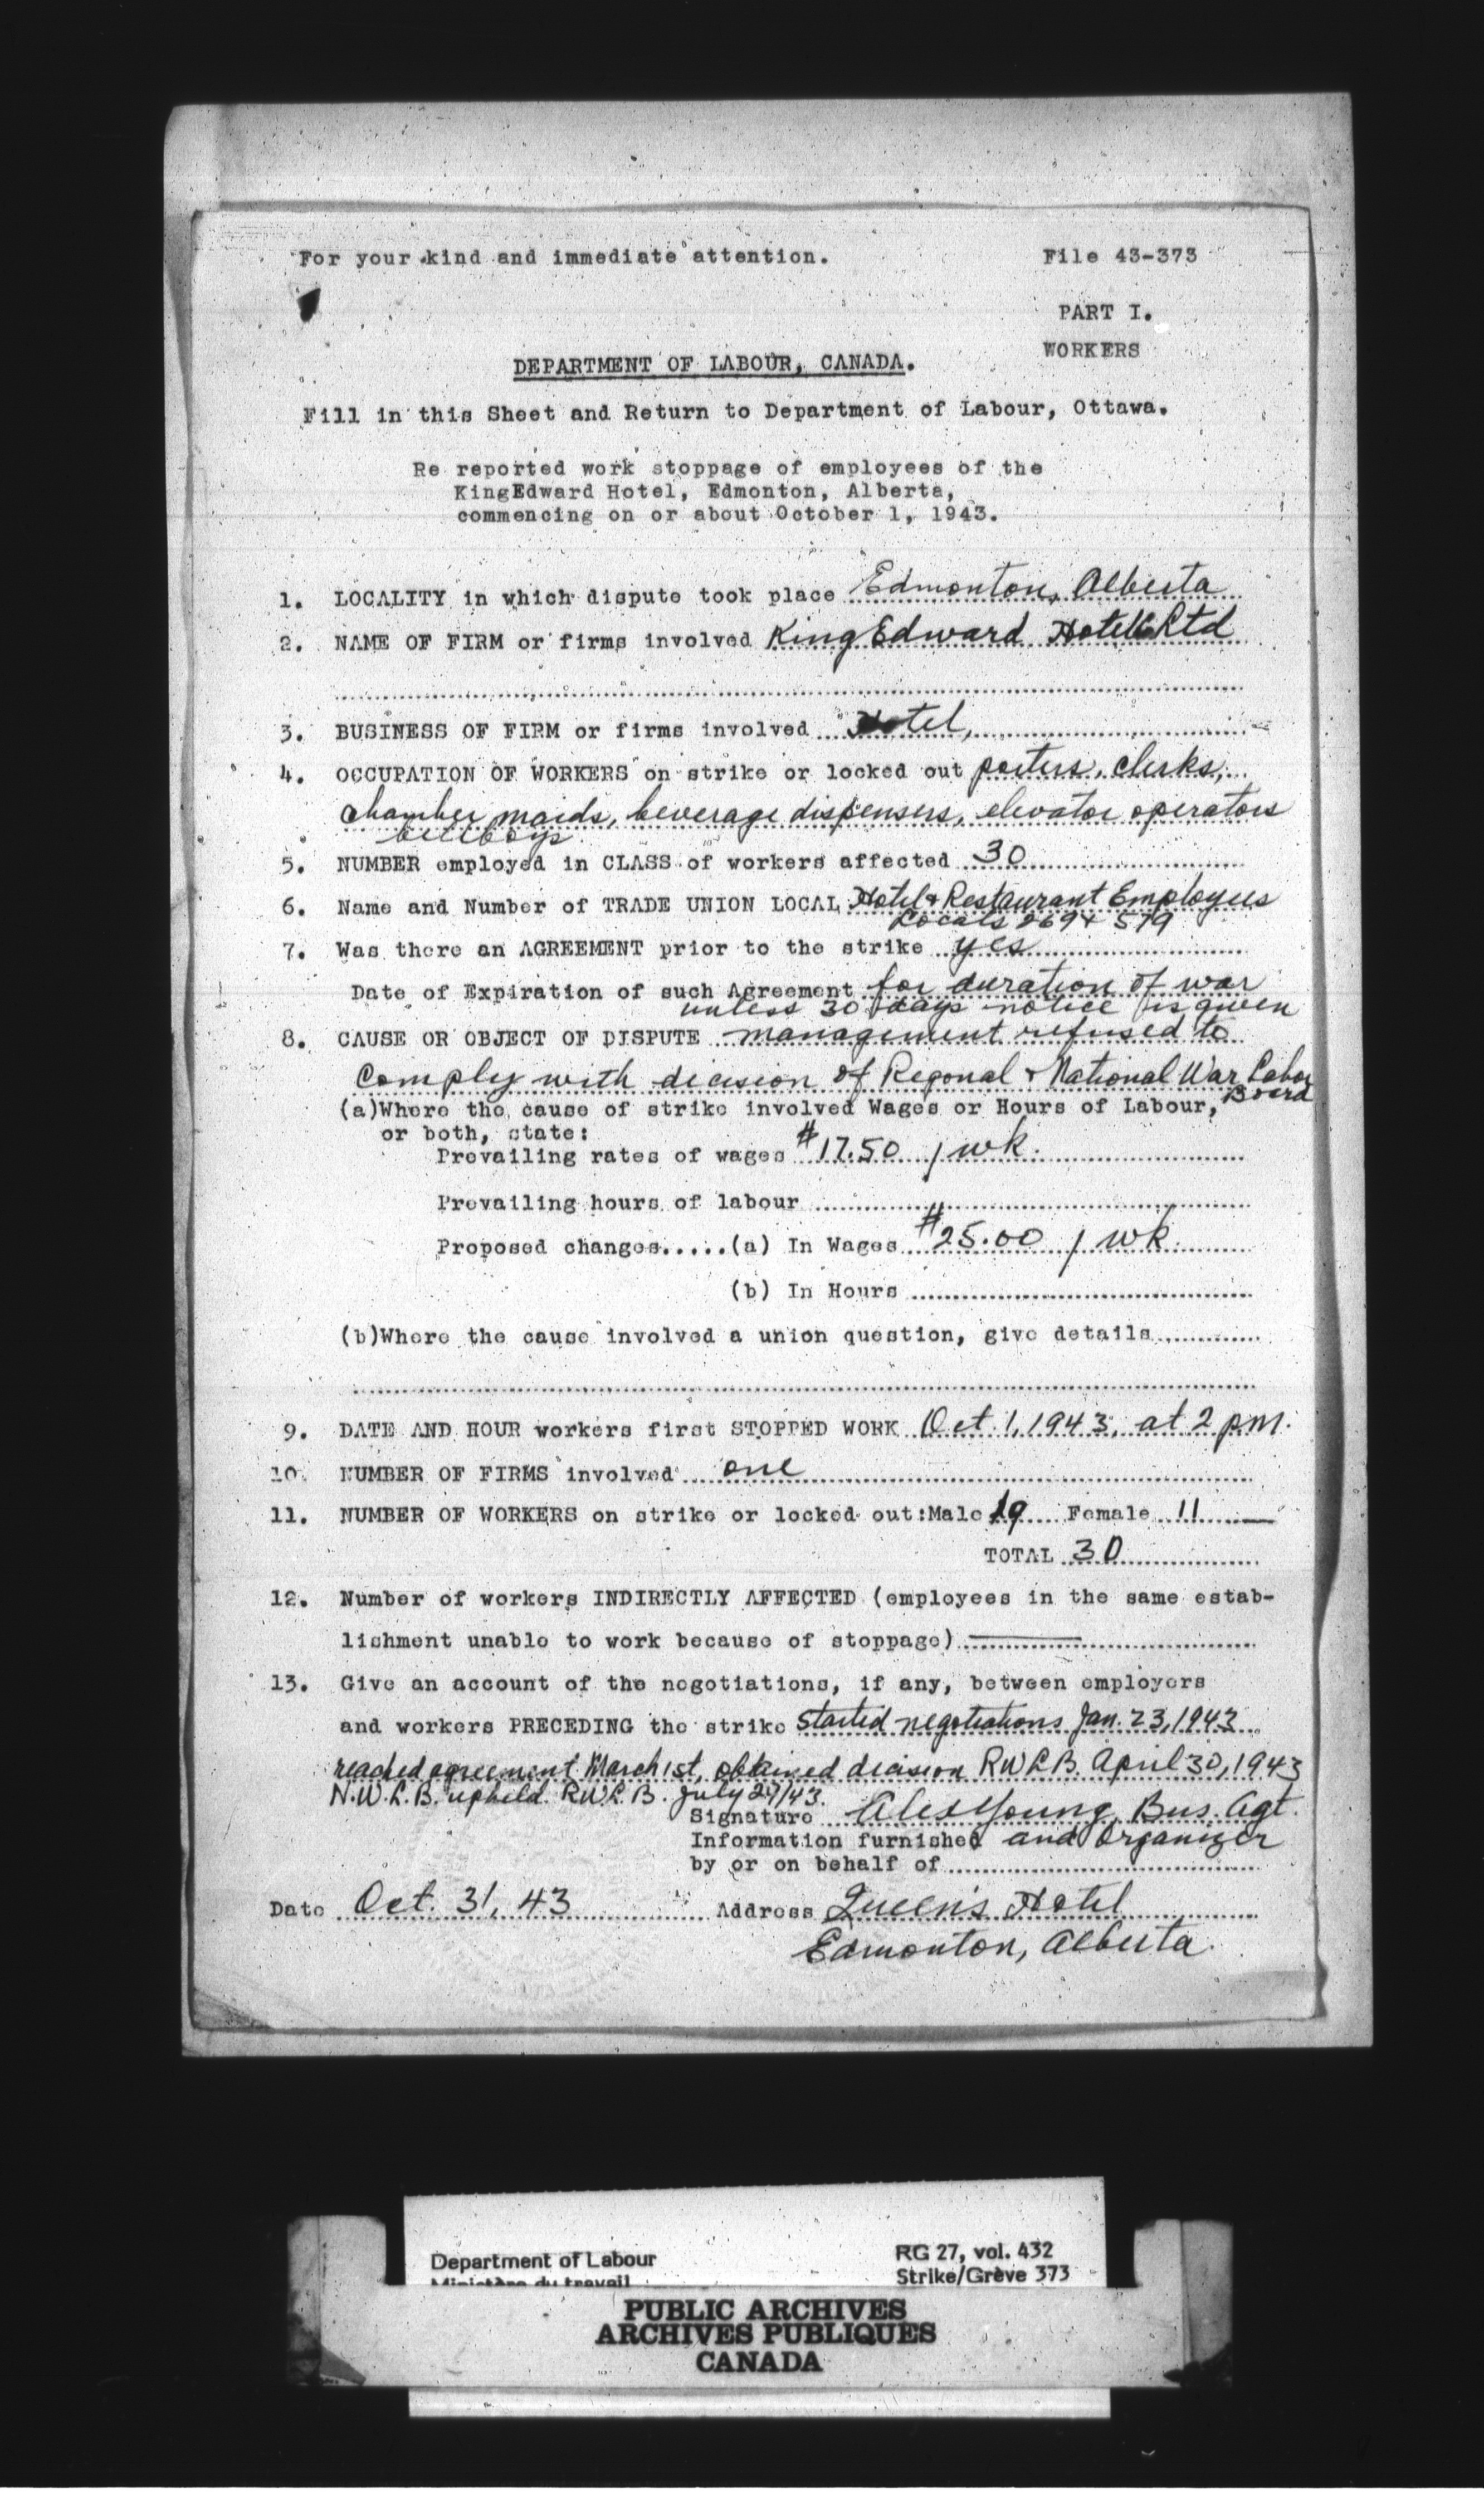 For your kind and immediate attention. File 43-373
PART I.
WORKERS
DEPARTMENT OF LABOUR, CANADA.
Fill in this Sheet and Return to Department of Labour, Ottawa.
Re reported work stoppage of employees of the
KingEdward Hotel, Edmonton, Alberta,
commencing on or about October 1, 1943.
1. LOCALITY in which dispute took place Edmonton, Alberta
2. NAME OF FIRM or firms involved King Edward Hotel Ltd
3. BUSINESS OF FIRM or firms involved Hotel,
4. OCCUPATION OF WORKERS on strike or locked out porters, clerks,
chamber maids, beverage dispensers, elevator operators
bellboys
5. NUMBER employed in CLASS of workers affected 30
6. Name and Number of TRADE UNION LOCAL Hotel & Restaurant Employees
Locals 269 & 579
7. Was there an AGREEMENT prior to the strike yes
Date of Expiration of such Agreement for duration of war
unless 30 days notice is given
8. CAUSE OR OBJECT OF DISPUTE management refused to
comply with decision of Regonal & National War Labor
Board
(a)Where the cause of strike involved Wages or Hours of Labour,
or both, state:
Prevailing rates of wages $17.50 / wk.
Prevailing hours of labour
Proposed changes.....(a) In Wages $25.00 / wk.
(b) In Hours
(b)Where the cause involved a union question, give details
9. DATE AND HOUR workers first STOPPED WORK Oct. 1, 1943, at 2 p.m.
10. NUMBER OF FIRMS involved one
11. NUMBER OF WORKERS on strike or locked out:Male 19 Female 11
TOTAL 30
12. Number of workers INDIRECTLY AFFECTED (employees in the same estab-
lishment unable to work because of stoppage)
13. Give an account of the negotiations, if any, between employers
and workers PRECEDING the strike started negotiations Jan. 23, 1943
reached agreement March 1st, obtained decision RWLB. April 30, 1943
N.W.L.B. upheld RWLB. July 27/43.
Signature Alex Young, Bus. Agt.
Information furnished and Organizer
by or on behalf of
Date Oct. 31, 43 Address Queen's Hotel
Edmonton, Alberta.
Department of Labour RG 27, vol. 432
Ministère du travail Strike/Grève 373
PUBLIC ARCHIVES
ARCHIVES PUBLIQUES
CANADA